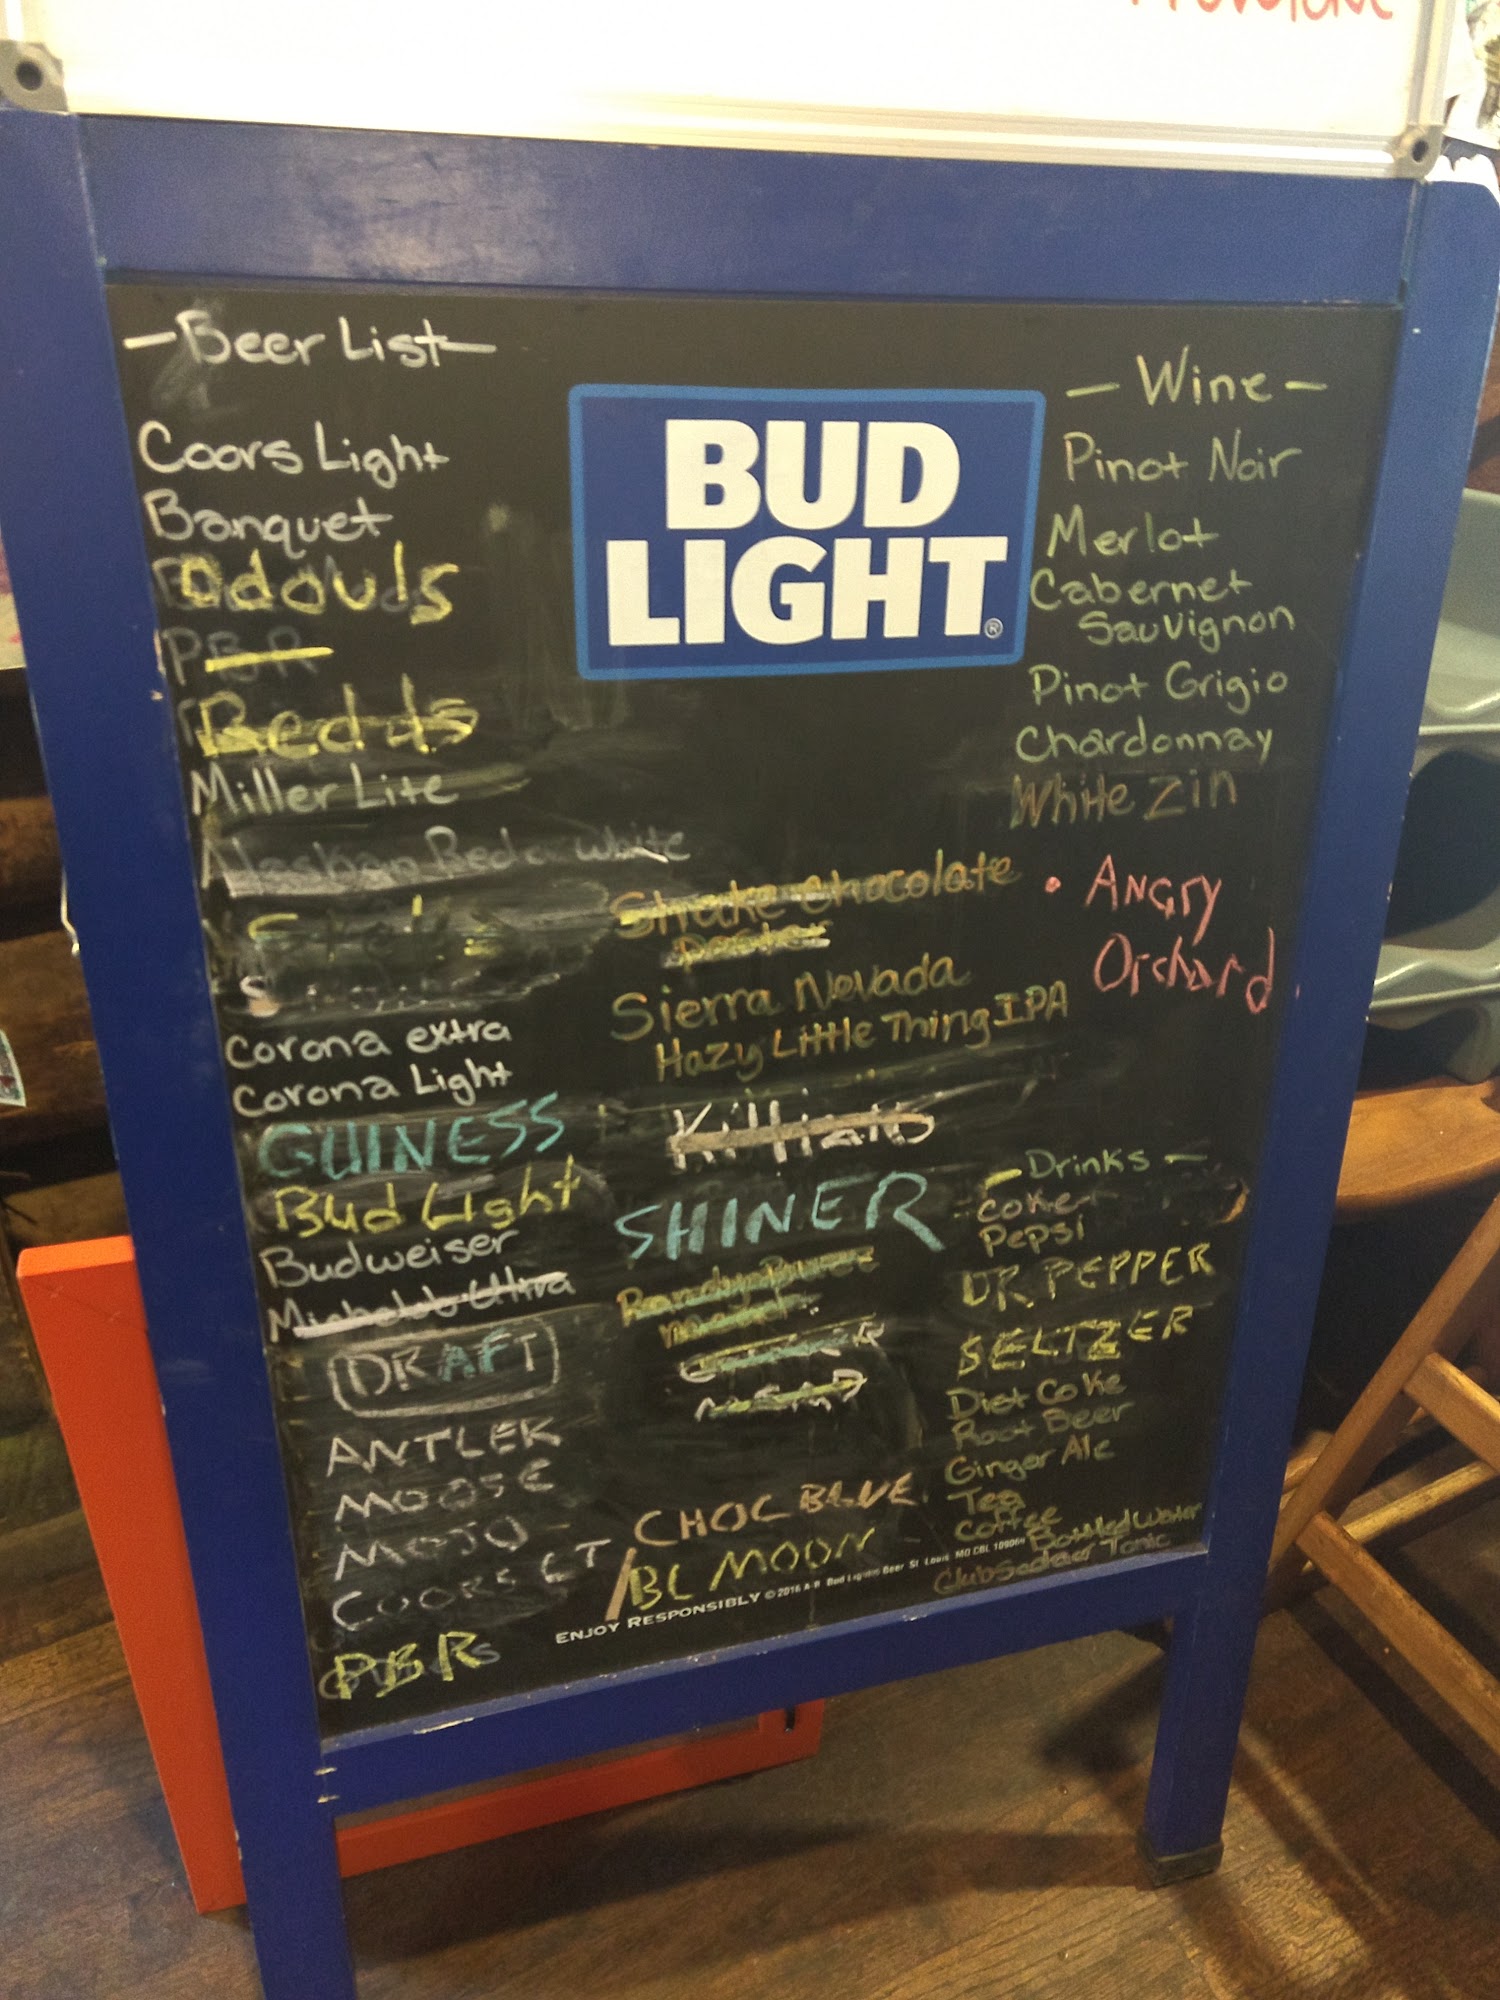 - Beer List -
Coors Light
Banquet
Odouls
PBR
Redds
Miller Lite
White
Corona extra
Corona Light
GUINESS
Bud Light
Budweiser
Michelob Ultra
DRAFT
ANTLER
MOOSE
MOJO
COORS LT
PBR
BUD
LIGHT®
Chocolate
Sierra Nevada
Hazy Little Thing IPA
Killians
SHINER
CHOC BLUE
BL MOON
ENJOY RESPONSIBLY © 2016 A-B, Bud Light® Beer St. Louis MO
- Wine -
Pinot Noir
Merlot
Cabernet
Sauvignon
Pinot Grigio
Chardonnay
White Zin
• ANGRY
Orchard
- Drinks -
Coke
Pepsi
DR. PEPPER
SELTZER
Diet Coke
Root Beer
Ginger Ale
Tea
Coffee
Bottled Water
Tonic